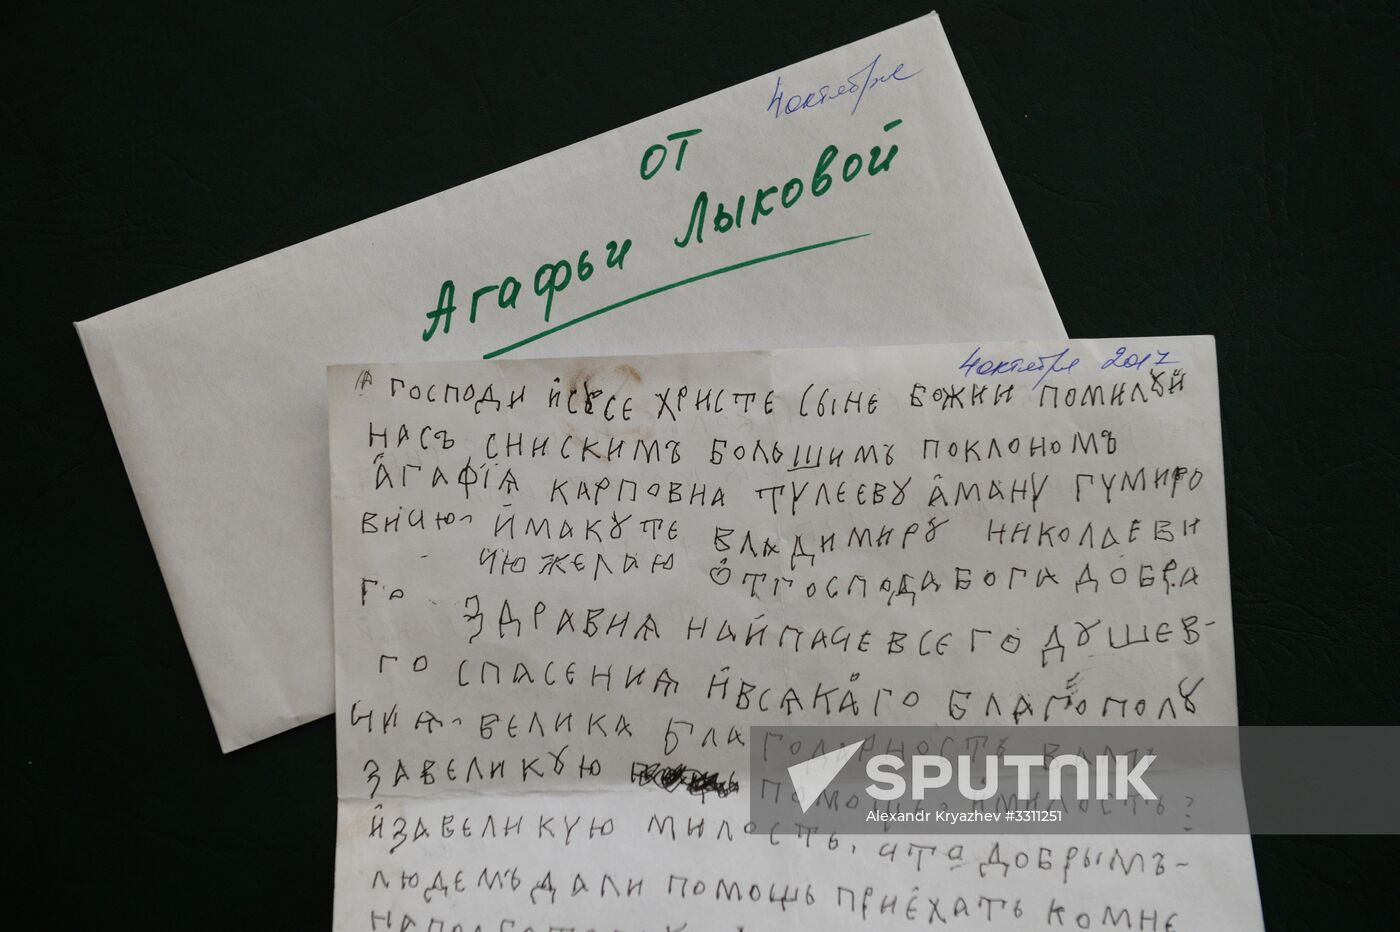 4 октября
от
Агафьи Лыковой
4 октября 2017
господи ісꙋсе христе сыне божии помилꙋй
насъ снискимъ большимъ поклономъ
агафїѧ карповна тꙋлееву аману гумиро
вичю и макꙋте владимирꙋ николаеви
чю желаю ѿ господа бога добра
го здравиѧ найпаче всего дꙋшев-
го спасениѧ и всѧкаго благополꙋ
чиѧ. велика благодарность вамъ
за великꙋю помощь, и милость
и за великую милость, что добрымъ-
людемъ дали помощь приехать ко мне
SPUTNIK
Alexandr Kryazhev #3311251